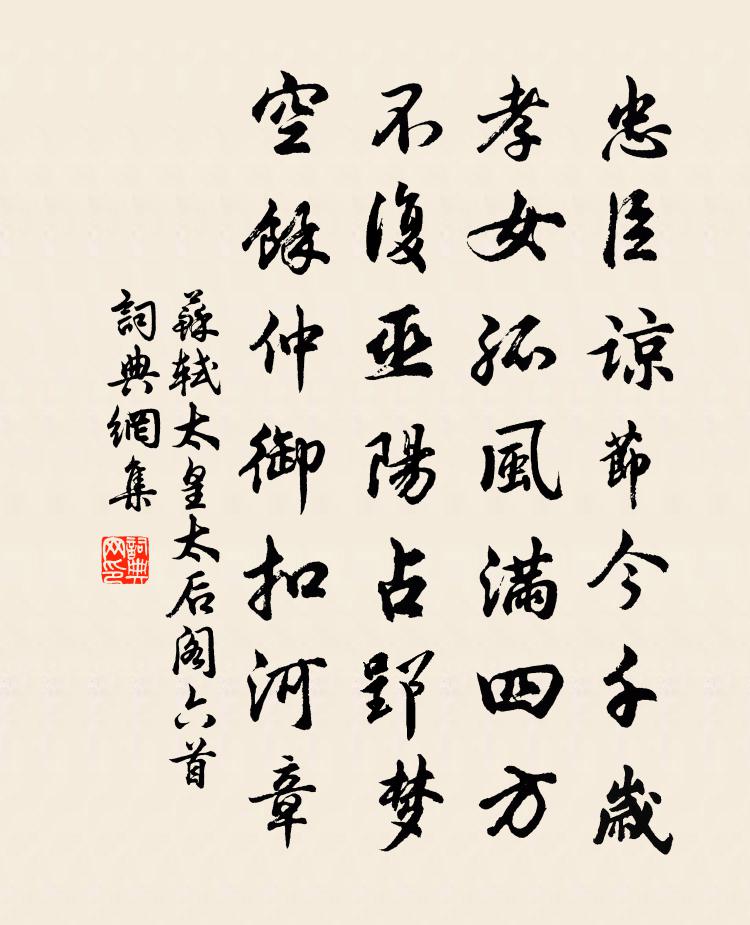 忠臣諒節今千歲
孝女孤風滿四方
不復巫陽占郢梦
空餘仲御扣河章
蘇軾太皇太后阁六首
詞典網集
詞典网印